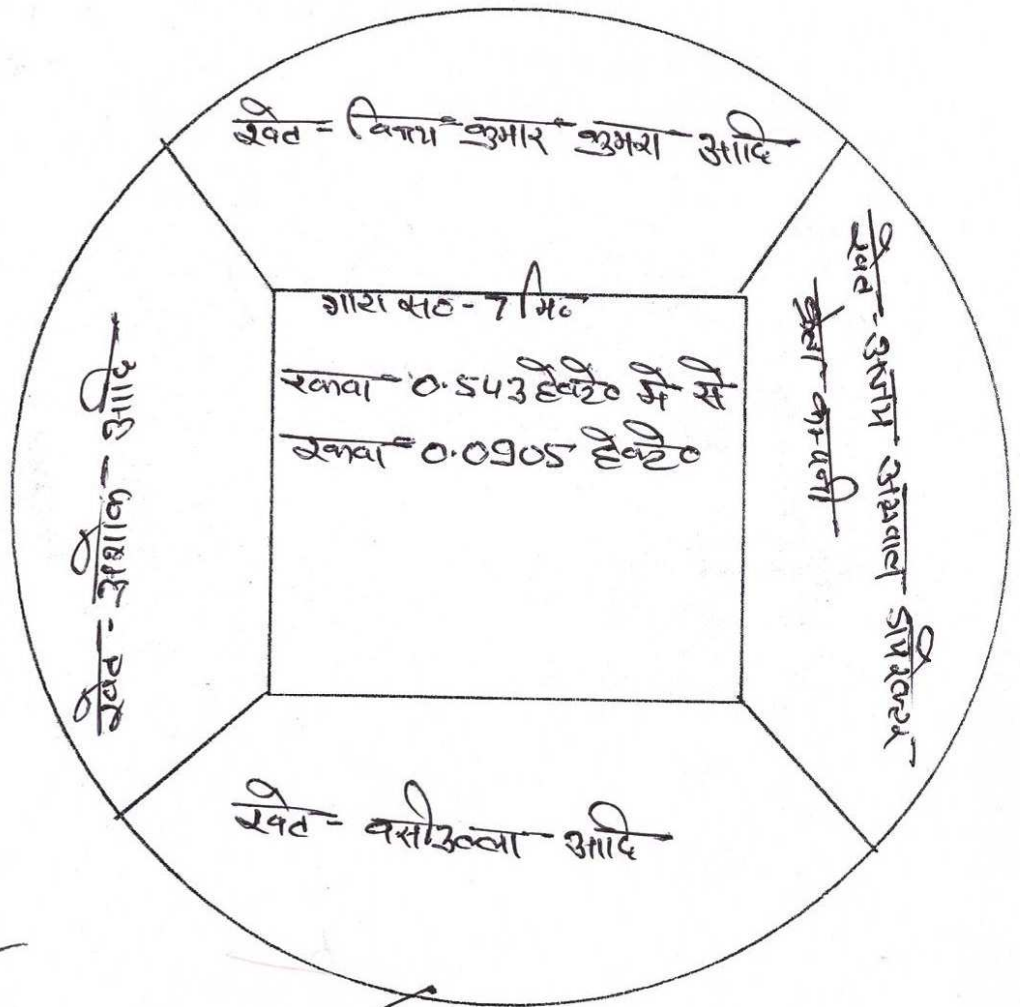 खेत - विजय कुमार कुमरा आदि
गाटा सं० - 7 मि०
रकबा 0.543 हेक्टे० में से
रकबा 0.0905 हेक्टे०
खेत - अशोक आदि
खेत - अग्रवाल डायरेक्टर
कम्पनी
खेत - वसीउल्ला आदि